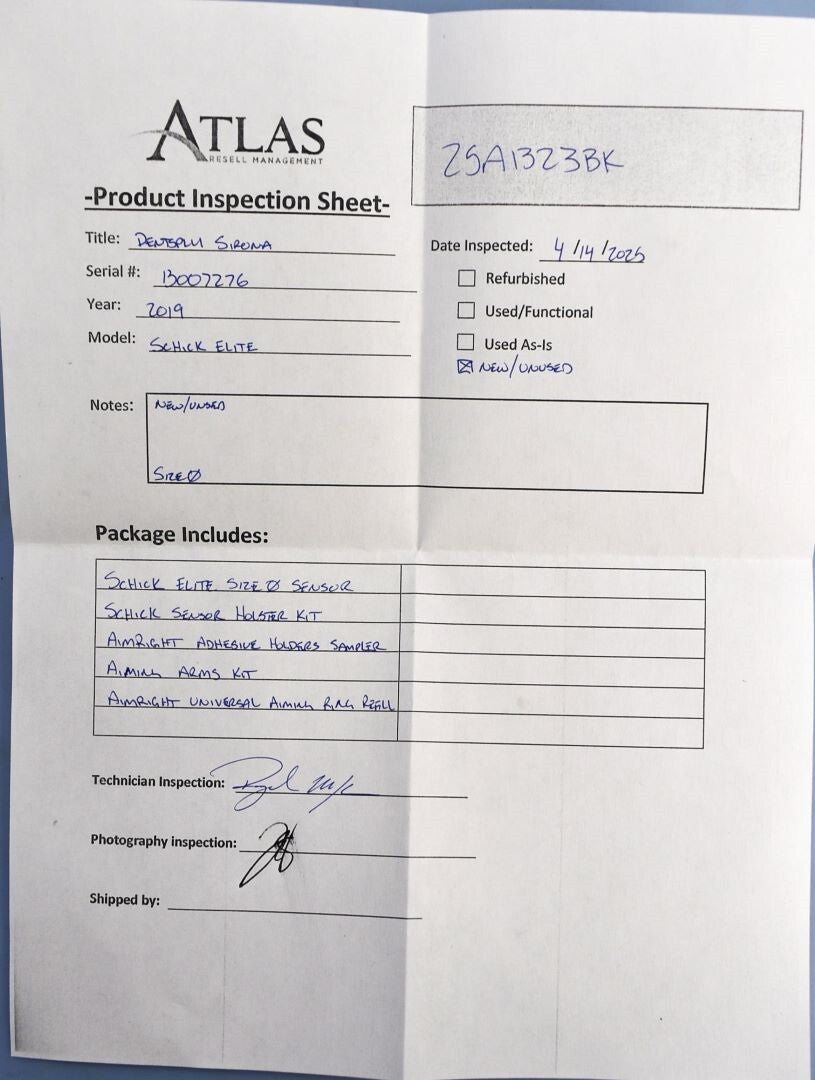 ATLAS
RESELL MANAGEMENT
25A1323BK
-Product Inspection Sheet-
Title: DENTSPLY SIRONA
Serial #: B007276
Year: 2019
Model: SCHICK ELITE
Date Inspected: 4/14/2025
Refurbished
Used/Functional
Used As-Is
NEW/UNUSED
Notes: NEW/UNUSED
SIZE 0
Package Includes:
SCHICK ELITE SIZE 0 SENSOR
SCHICK SENSOR HOLSTER KIT
AIMRIGHT ADHESIVE HOLDERS SAMPLER
AIMING ARMS KIT
AIMRIGHT UNIVERSAL AIMING RING REFILL
Technician Inspection:
Photography inspection:
Shipped by: